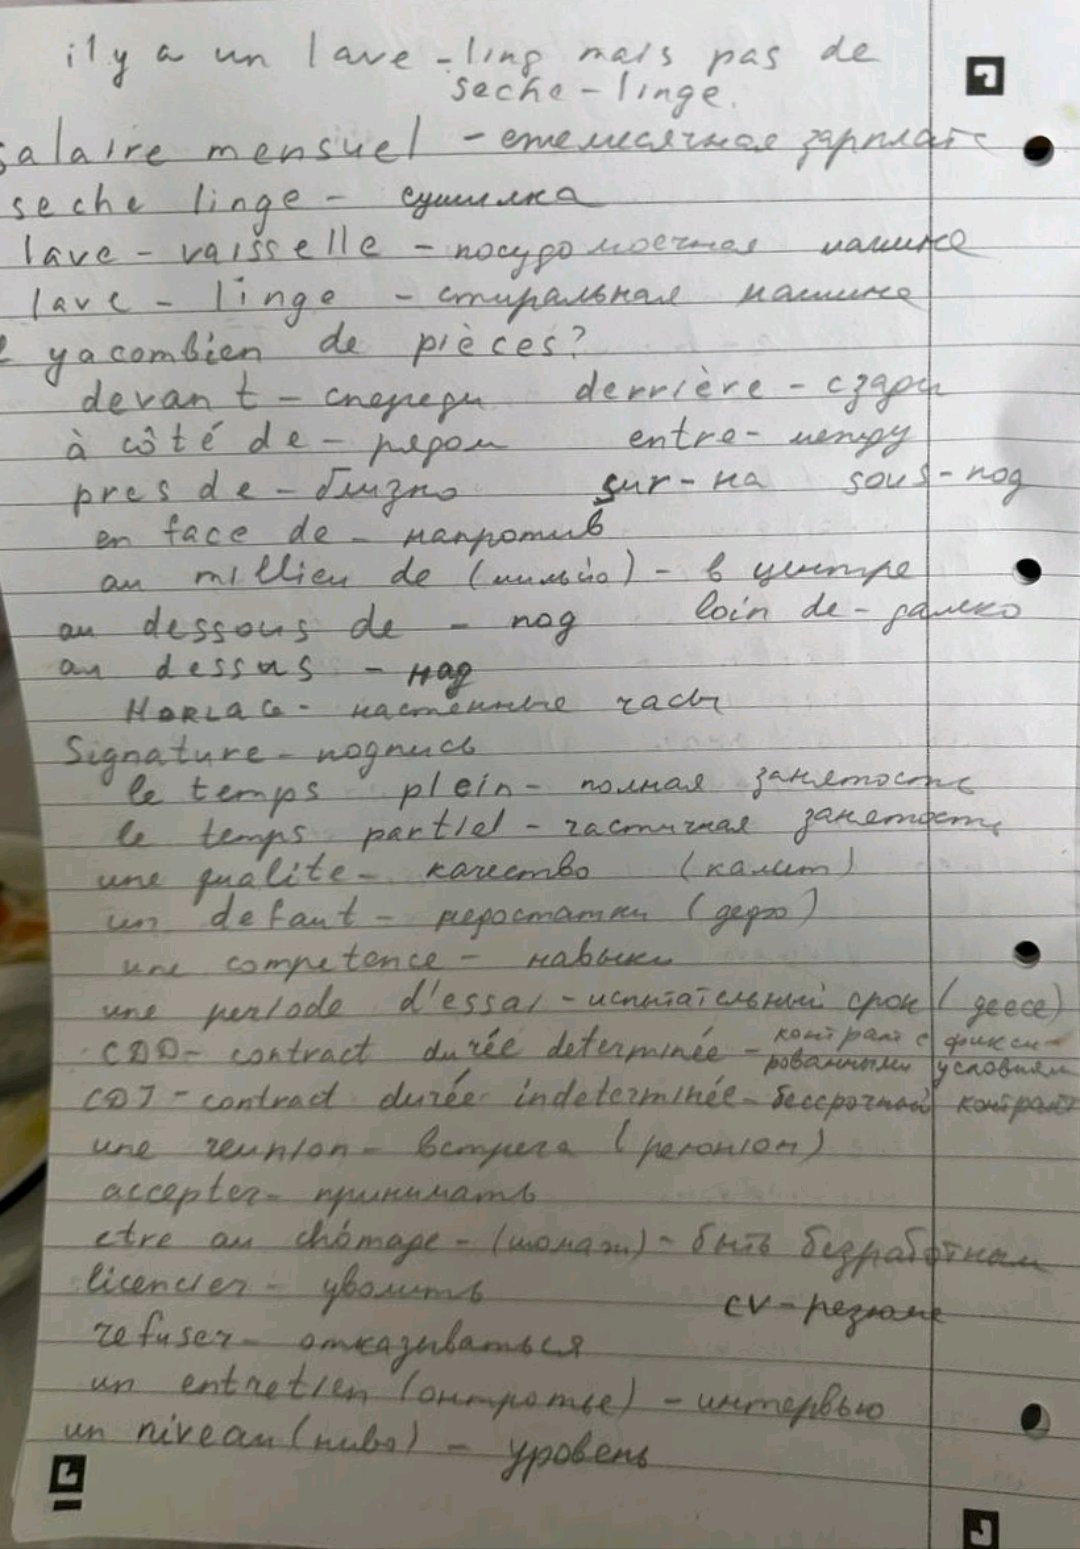 il y a un lave-ling mais pas de
seche-linge.
salaire mensuel - ежемесячная зарплата
seche linge - сушилка
lave-vaisselle - посудомоечная машина
lave-linge - стиральная машина
ya combien de pièces?
devant - спереди derrière - сзади
à côté de - рядом entre - между
pres de - близко sur - на sous - под
en face de - напротив
au millieu de (мильйо) - в центре
au dessous de - под loin de - далеко
au dessus - над
HORLAG - настенные часы
Signature - подпись
le temps plein - полная занятость
le temps partiel - частичная занятость
une qualite - качество (калит)
un defaut - недостатки (дефо)
une competence - навыки
une periode d'essai - испытательный срок (десе)
CDD - contract durée determinée - контракт с фикси-
рованными условиям
CDI - contract durée indeterminée - бессрочный контракт
une reunion - встреча (реюнион)
accepter - принимать
etre au chômage - (шомаж) - быть безработным
licencier - уволить
cv - резюме
refuser - отказываться
un entretien (онтротье) - интервью
un niveau (ниво) - уровень